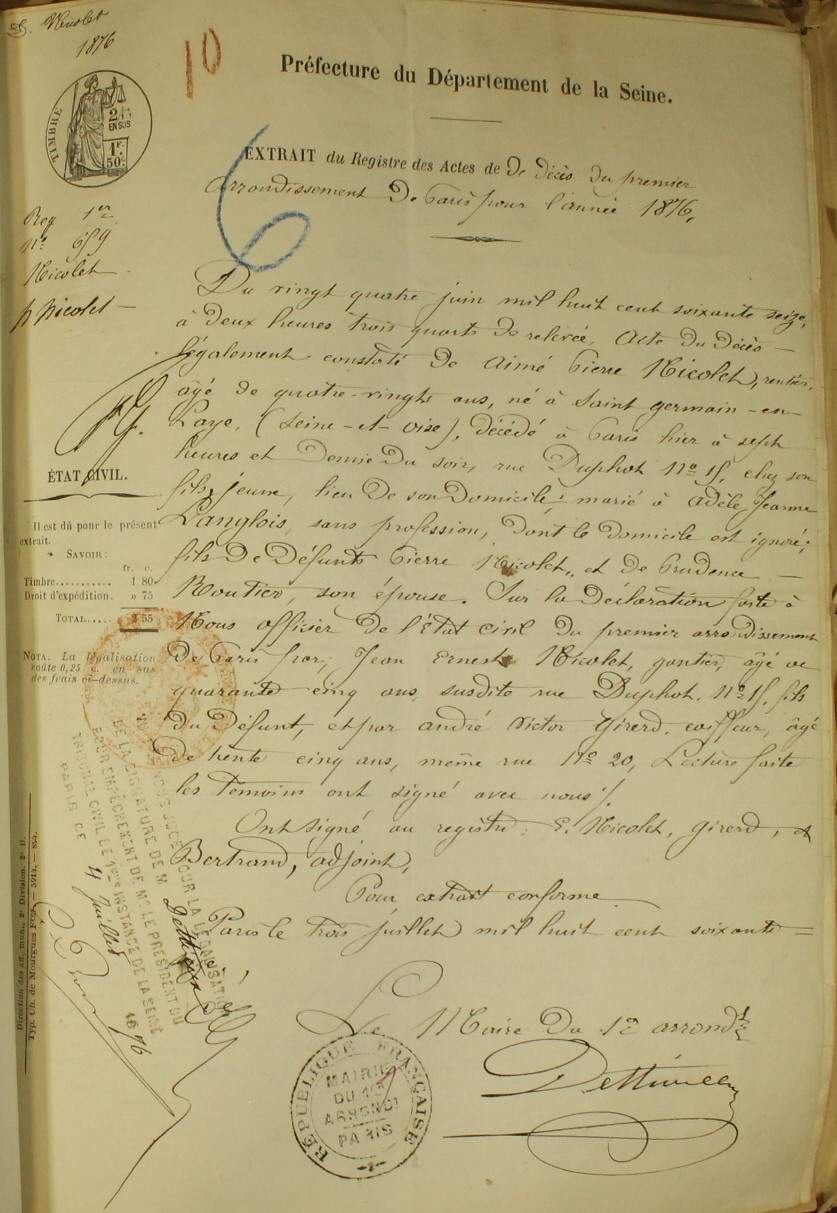 Nicolet
1876
10
Préfecture du Département de la Seine.
TIMBRE
2/10
EN SUS
1F
50c
6
EXTRAIT du Registre des Actes de De Décès du premier
arrondissement De Paris pour l'année 1876.
Reg 1er
No 659
Nicolet
p Nicolet
Du vingt quatre juin mil huit cent soixante seize,
à deux heures trois quarts De relevée, Acte du Décès
légalement constaté de Aimé Pierre Nicolet, rentier,
âgé de quatre-vingts ans, né à Saint germain-en-
Laye, (Seine-et-oise), décédé à Paris hier à sept
heures et Demie Du soir, rue Duphot No 15, chez son
fils jeune, lieu De son Domicile; marié à adèle Jeanne
Langlois, sans profession, Dont le domicile est ignoré;
fils De Défunts Pierre Nicolet, et De Prudence
Routier, son épouse. Sur la Déclaration faite à
Nous officier De l'État civil Du premier arrondissement
De Paris par, Jean Ernest Nicolet, gantier, âgé de
quarante cinq ans, susdite rue Duphot No 15, fils
Du Défunt, et par andré Victor Girerd, coiffeur, âgé
De trente cinq ans, même rue No 20, Lecture faite
les Temoins ont signé avec nous.
Ont signé au registre: E. Nicolet, Girerd, et
Bertrand, adjoint,
Pour extrait conforme
Paris le trois juillet mil huit cent soixante =
Le Maire Du 1er arrondt
ÉTAT CIVIL.
Il est dû pour le présent
extrait.
SAVOIR:
fr. c.
Timbre........... 1 80
Droit d'expédition. » 75
TOTAL..... 2 55
NOTA. La légalisation
coûte 0,25 c. en sus
des frais ci-dessus.
POUR LA LÉGALISATION
DE LA SIGNATURE DE M
POUR EMPÊCHEMENT DE Mr LE PRÉSIDENT DU
TRIBUNAL CIVIL DE 1ère INSTANCE DE LA SEINE
PARIS CE 4 Juillet 1876
RÉPUBLIQUE FRANÇAISE
MAIRIE
DU 1er
ARRONDt
PARIS
Direction des aff. mun., 2e Division. 2e B.
Typ. Ch. de Mourgues Frès. — 3914. —